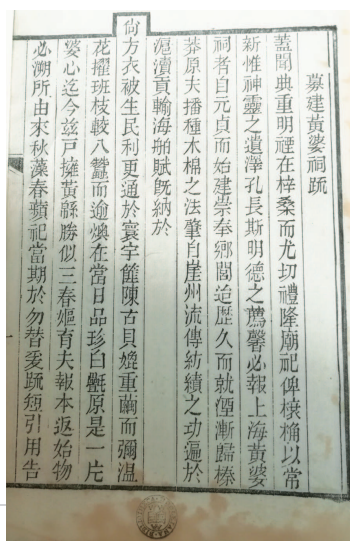 募建黃婆祠疏
蓋聞典重明禋在梓桑而尤切禮隆廟祀俾榱桷以常
新惟神靈之遺澤孔長斯明德之薦馨必報上海黃婆
祠者自元貞而始建崇奉鄉閭迨歷久而就傾漸歸榛
莽原夫播種木棉之法肇自崖州流傳紡績之功遍於
滬瀆貢輸海舶賦既納於
尚方衣被生民利更通於寰宇雖陳古貝媲重繭而彌溫
花擢班枝較八蠶而逾燠在當日品珍白氎原是一片
婆心迄今茲戶擁黃緜勝似三春嫗育夫報本返始物
必溯所由來秋藻春蘋祀當期於勿替爰疏短引用告